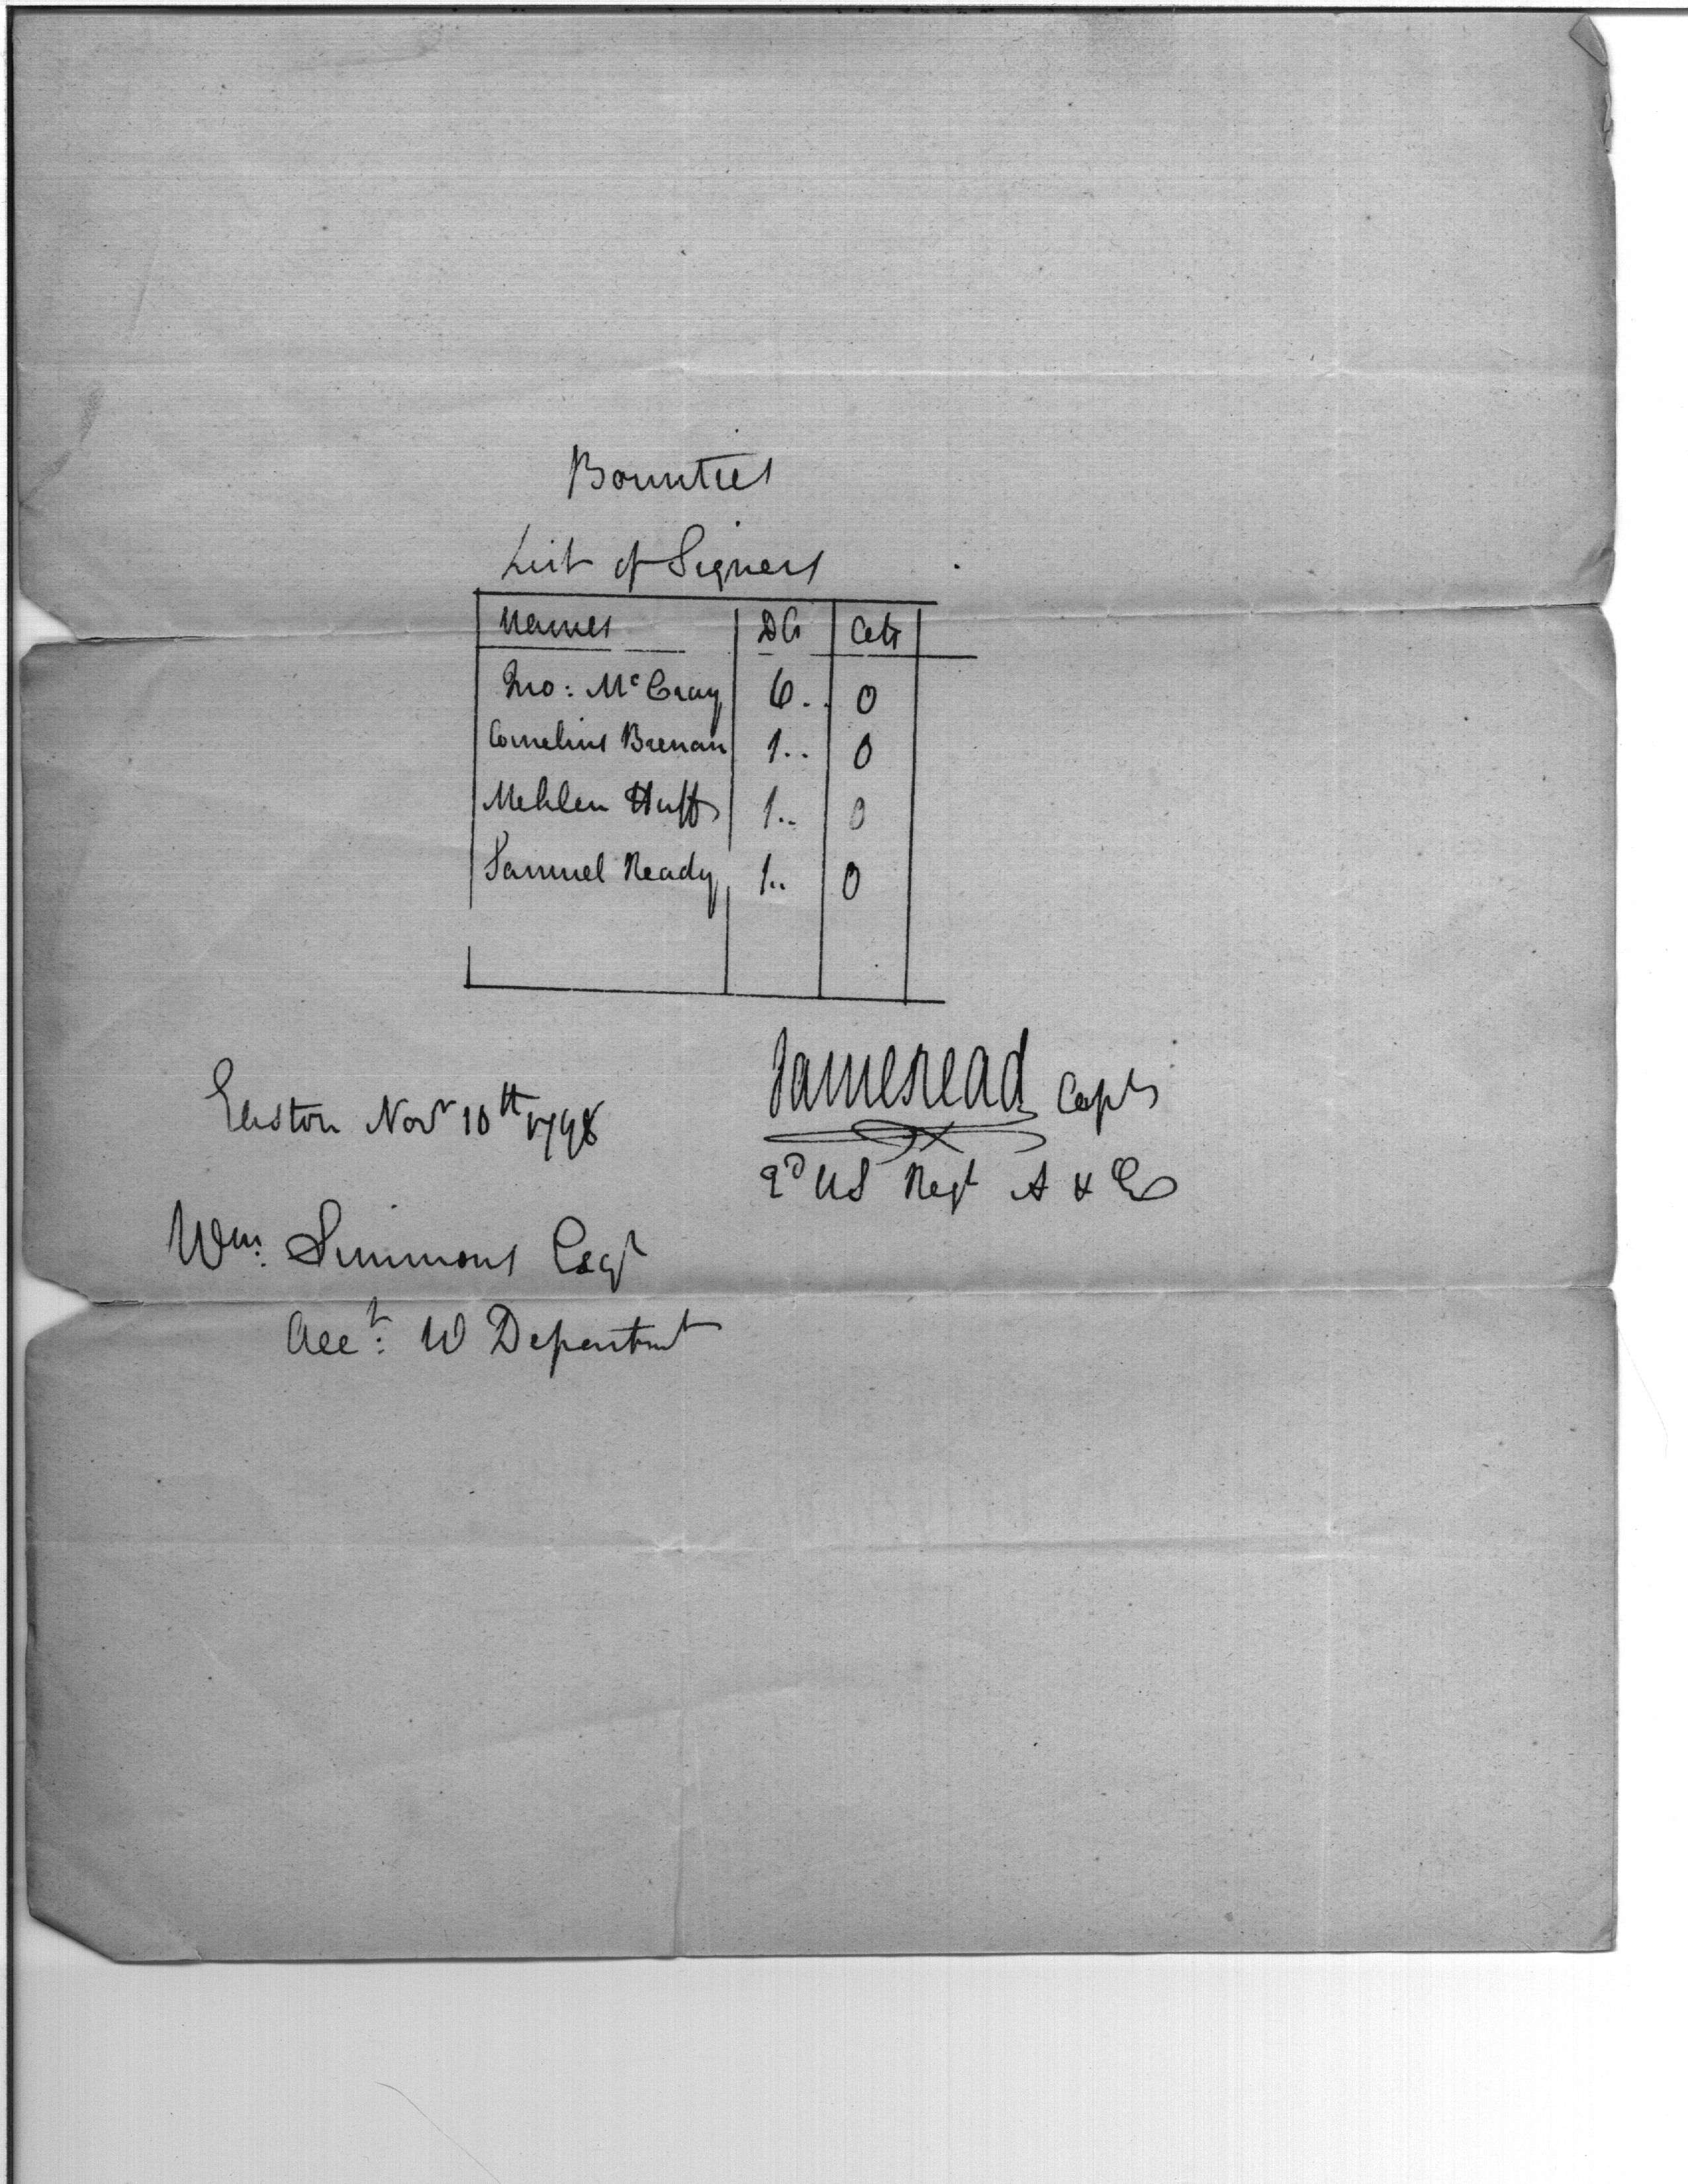 Bounties
List of Signers
Names Dls Cets
Jno: McCray 6.. 0
Cornelius Brenan 1.. 0
Mehlen Huff 1.. 0
Samuel Ready 1.. 0
James Read Capt
Easton Novr 10th 1798
2d US Regt A & E
Wm: Simmons Esqr
Acct: W Departmt